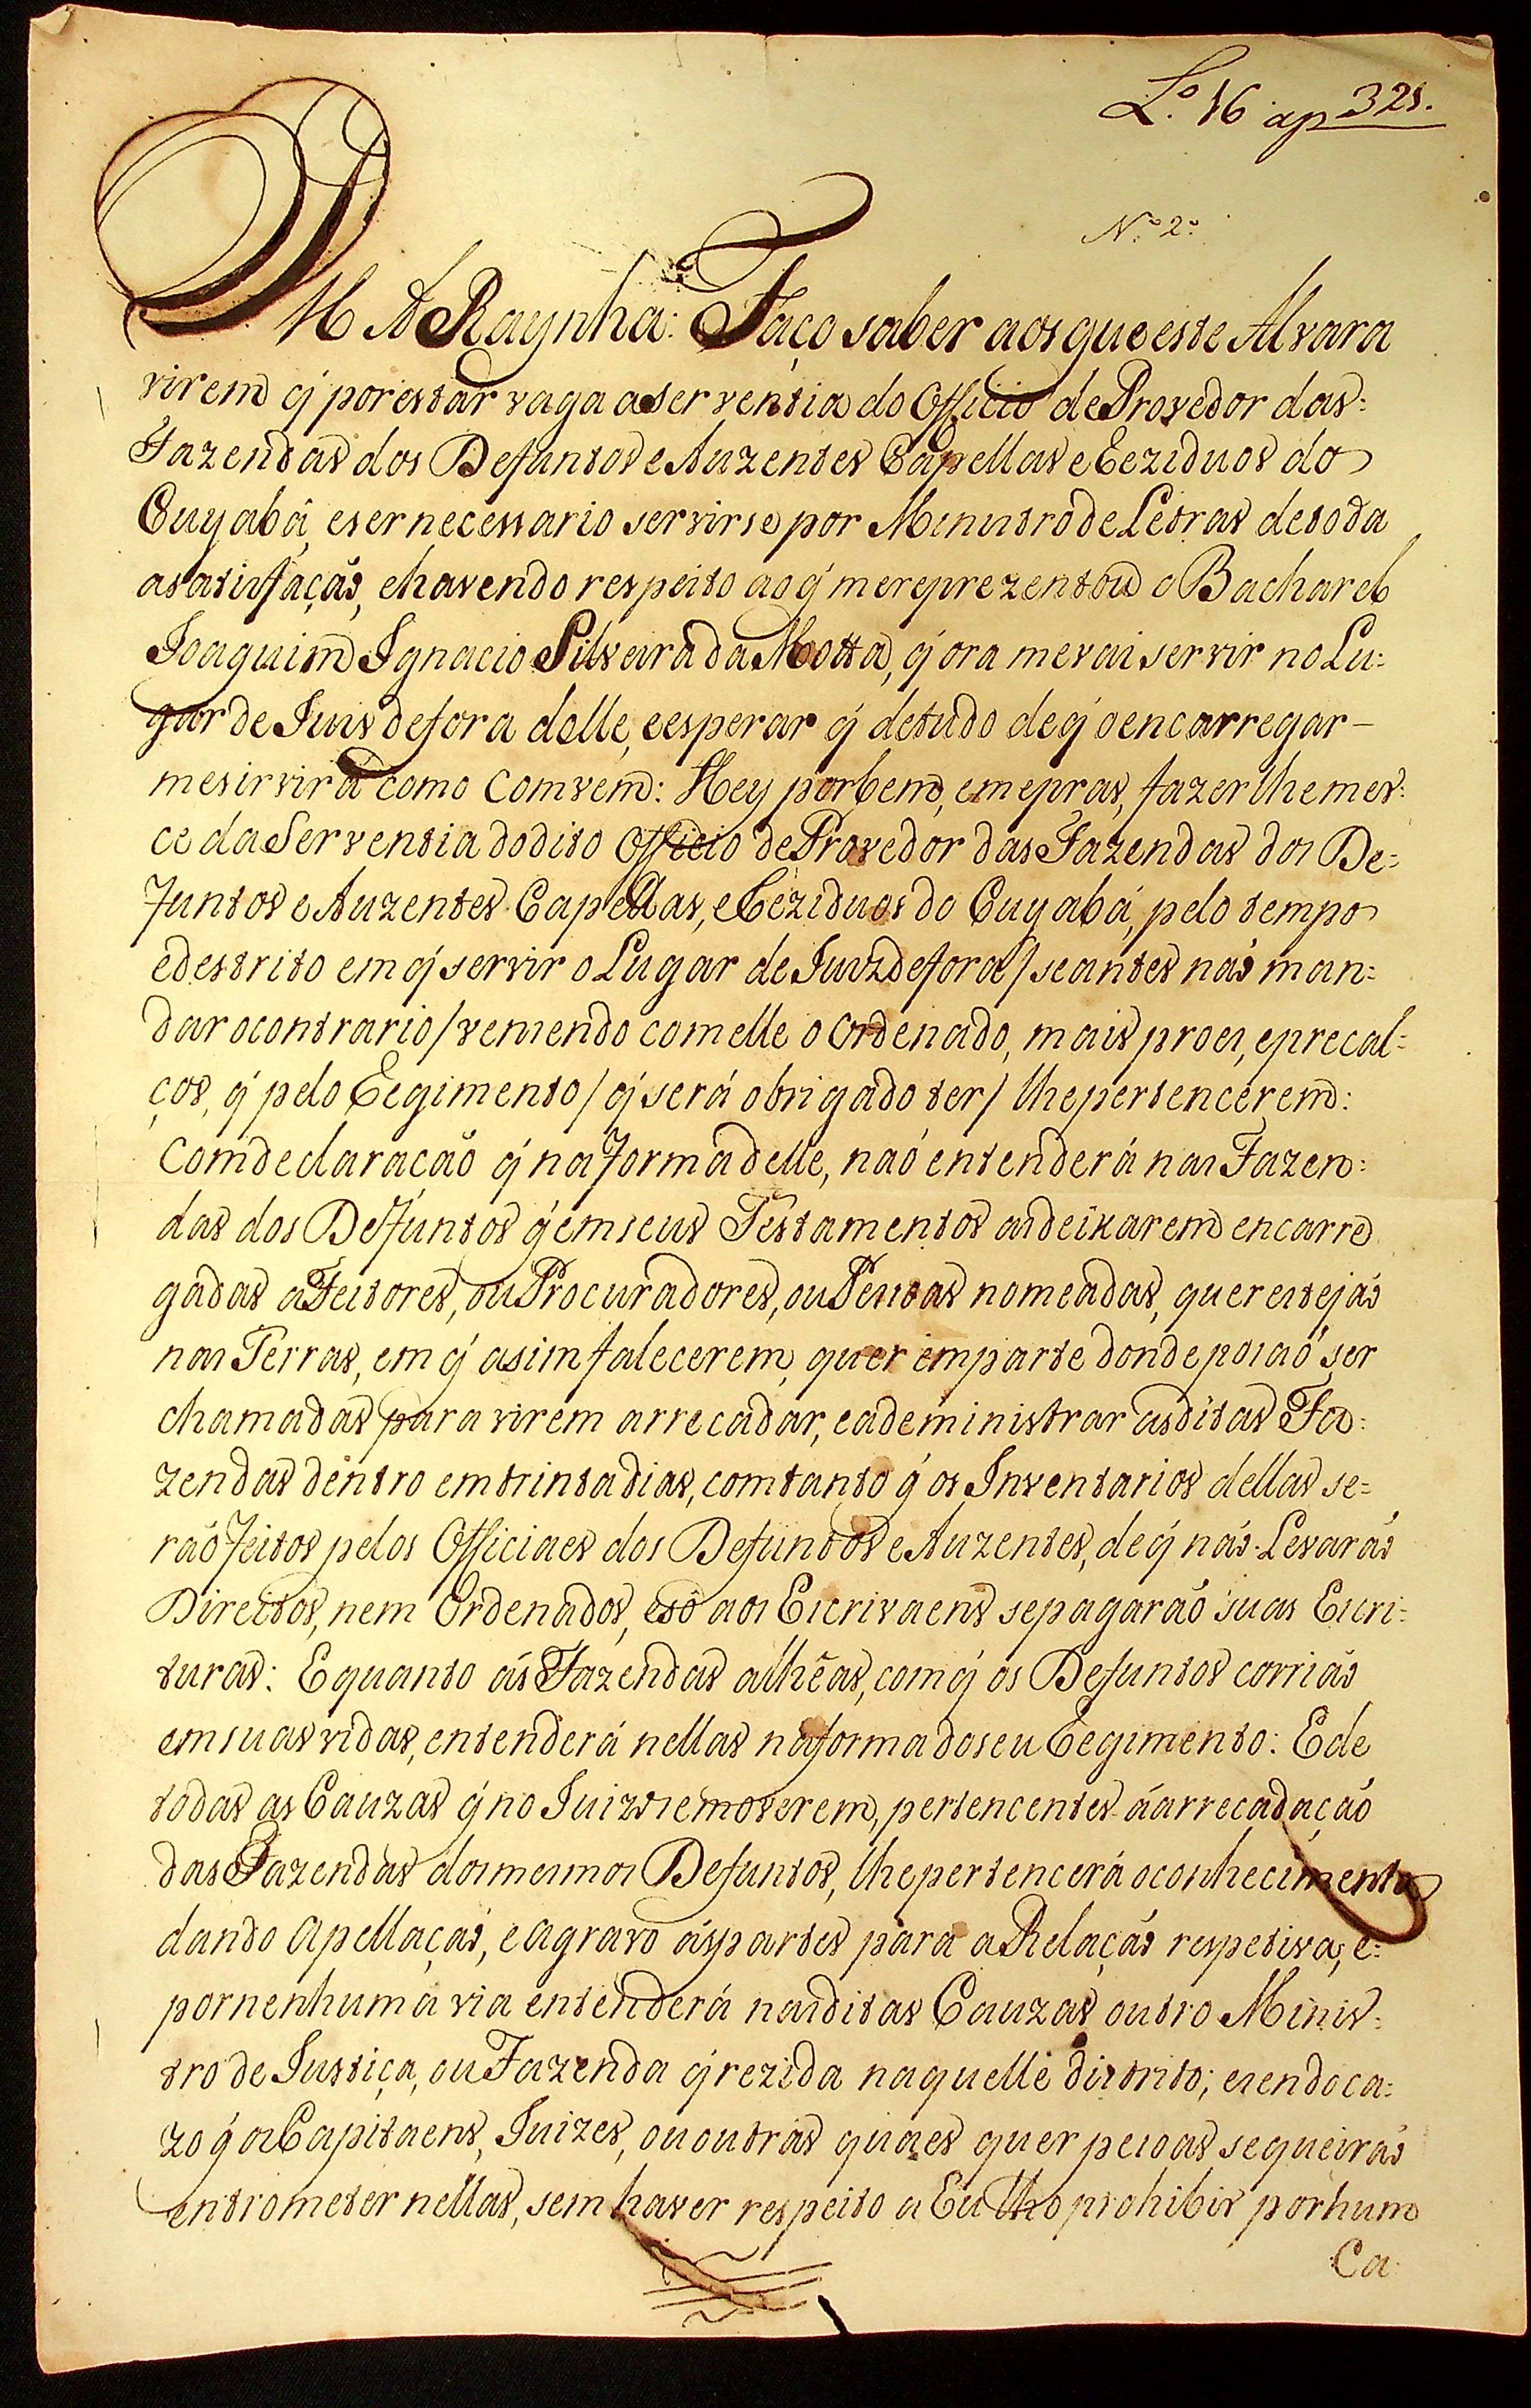 L.º 16 ap 321.
N.º 2.º
EU A Raynha: Faço saber aos que este Alvara
virem q̃ por estar vaga a Serventia do Officio de Provedor das=
Fazendas dos Defuntos e Auzentes Capellas e Reziduos do
Cuyabá, e ser necessario servirse por Ministro de Letras de toda
a satisfaçaõ, e havendo respeito ao q̃ me reprezentou o Bacharel
Joaquim Ignacio Silveira da Motta, q̃ ora me vai servir no Lu=
gar de Juis de fora delle, e esperar q̃ de tudo de q̃ o encarregar-
me sirvirá como Comvem: Hey por bem, e me pras, fazerlhe mer=
ce da Serventia do dito Officio de Provedor das Fazendas dos De=
funtos e Auzentes Capellas, e Reziduos do Cuyabá, pelo tempo
e destrito em q̃ servir o Lugar de Juiz de fora / se antes naõ man=
dar o contrario / vemendo com elle o Ordenado, mais proes, e precal=
ços, q̃ pelo Regimento / q̃ será obrigado ter / lhe pertencerem:
Com declaracaõ q̃ na forma delle, naõ entenderá nas Fazen=
das dos Defuntos q̃ em seus Testamentos as deixarem encarre
gadas a Feitores, ou Procuradores, ou Pesoas nomeadas, quer estejaõ
nas Terras, em q̃ asim falecerem, quer em parte donde posaõ ser
chamadas para virem arrecadar, e administrar as ditas Fa=
zendas dentro em trinta dias, com tanto q̃ os Inventarios dellas se=
raõ feitos pelos Officiaes dos Defuntos e Auzentes, de q̃ naõ Levaraõ
Direitos, nem Ordenados, e só aos Escrivaens se pagaraõ suas Escri=
turas: E quanto ás Fazendas alhêas, com q̃ os Defuntos corriaõ
em suas vidas, entenderá nellas na forma do seu Regimento: E de
todas as Cauzas q̃ no Juizo se moverem, pertencentes á arrecadaçaõ
das Fazendas dos mesmos Defuntos, lhe pertencerá o conhecimento
dando Apellaçaõ, e agravo ás partes para a Relaçaõ respetiva; e=
por nenhuma via entenderá nas ditas Cauzas outro Minis=
tro de Justiça, ou Fazenda q̃ rezida naquelle distrito; e sendo ca=
zo q̃ os Capitaens, Juizes, ou outras quaes quer pesoas se queiraõ
entrometer nellas, sem haver respeito a Eu lho prohibir por hum
Ca